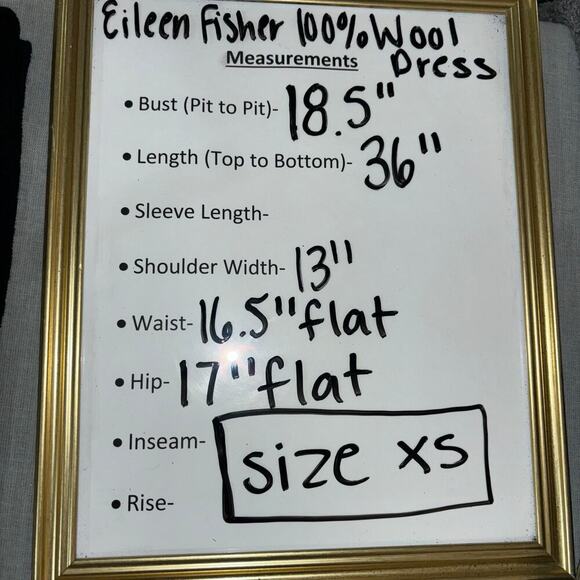 Eileen Fisher 100% Wool
Measurements Dress
• Bust (Pit to Pit)- 18.5"
• Length (Top to Bottom)- 36"
• Sleeve Length-
• Shoulder Width- 13"
• Waist- 16.5" flat
• Hip- 17" flat
• Inseam-
size xs
• Rise-